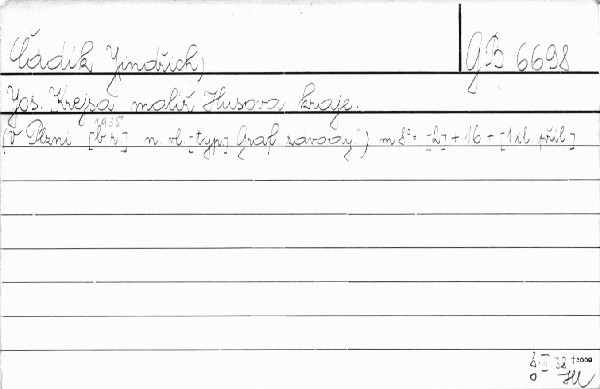 Čádík Jindřich, GB 6698
Jos. Krejsa malíř Husova kraje.
1935
(V Plzni [b. r.] n. vl. [typ.] Graf. závody.") m 8° = [2] + 16 + [1 il. příl.]
II. 38